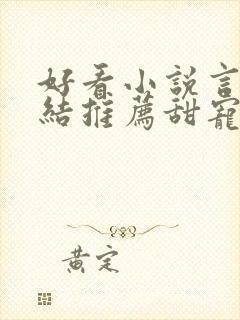 好看小說言
結推薦甜寵
黃定